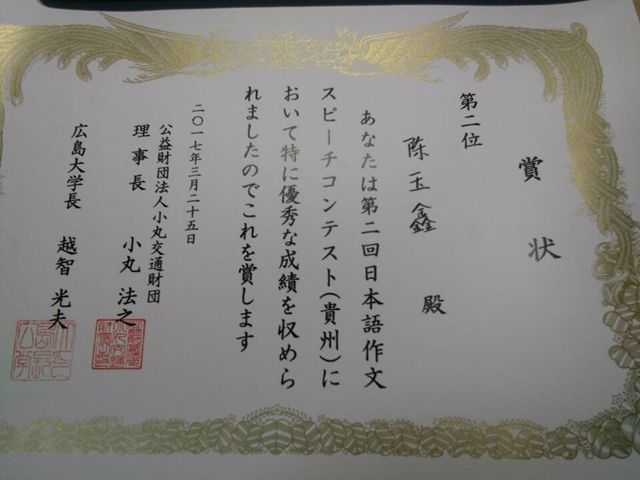 賞状
第二位
陈玉鑫 殿
あなたは第二回日本語作文
スピーチコンテスト(貴州)に
おいて特に優秀な成績を収めら
れましたのでこれを賞します
二〇一七年三月二十五日
公益財団法人小丸交通財団
理事長 小丸 法之
広島大学長 越智 光夫